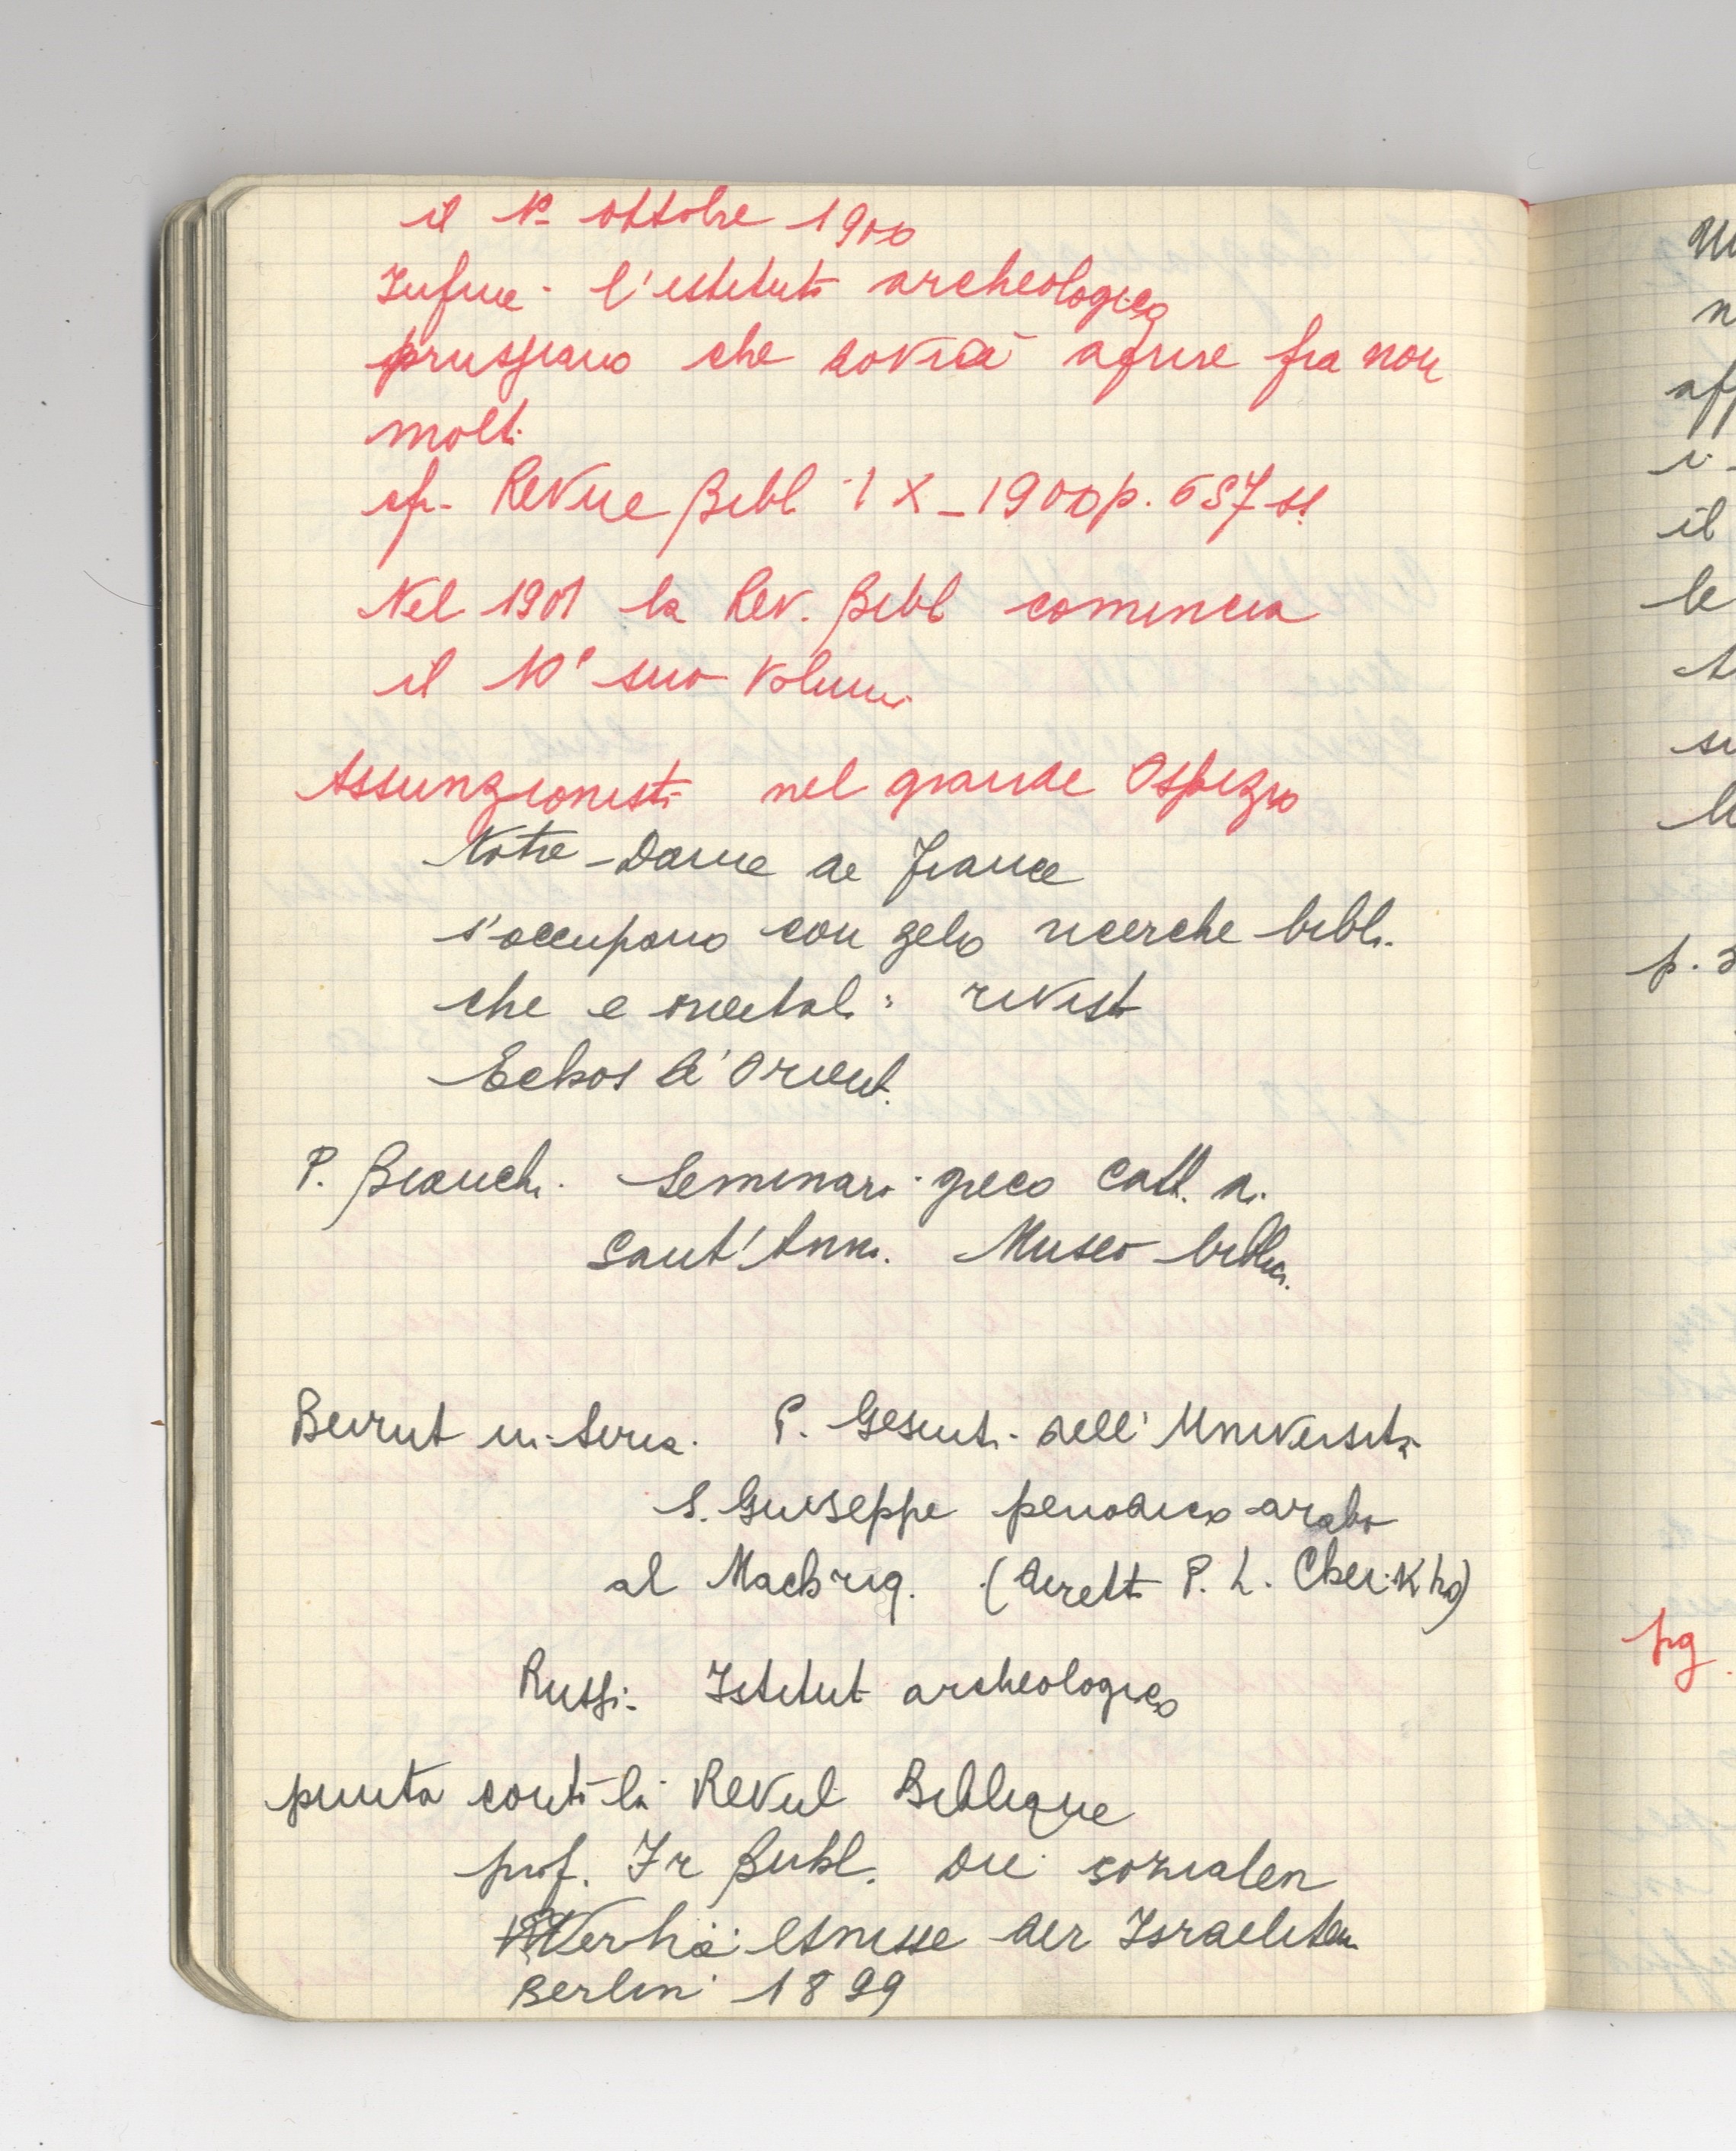 il 1º ottobre 1900
Infine - l'istituto archeologico
prussiano che dovrà aprire fra non
molti
cfr. Revue Bibl IX - 1900 p. 657 ss
Nel 1901 la Rev. Bibl comincia
il 10º suo volume
Assunzionisti nel grande Ospizio
Notre-Dame de France
s'occupano con zelo ricerche bibli-
che e orientali: rivista
Echos d'Orient.
P. Bianchi. Seminario greco catt. di
Sant'Anna. Museo biblico.
Beirut in Siria. P. Gesuiti dell'Università
S. Giuseppe periodico arabo
al Machriq. (dirett P. L. Cheikho)
Russi - Istituto archeologico
punta contro la Revue Biblique
prof. Fr Buhl. Die sozialen
Verhältnisse der Israeliten
Berlin 1899
Un
n
il
le
p. 3
pg.